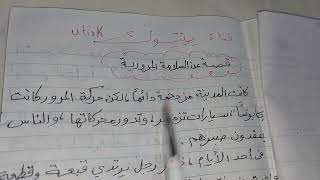 قناة منتول ك utisk
قصة عن السلامة المرورية
كانت المدينة مزدحمة دائماً، لكن حركة المرور كانت
سيارات تزمر، وتدور محركاتها، والناس
يفقدون صبرهم.
في أحد الأيام، رجل يرتدي قبعة وقطعة